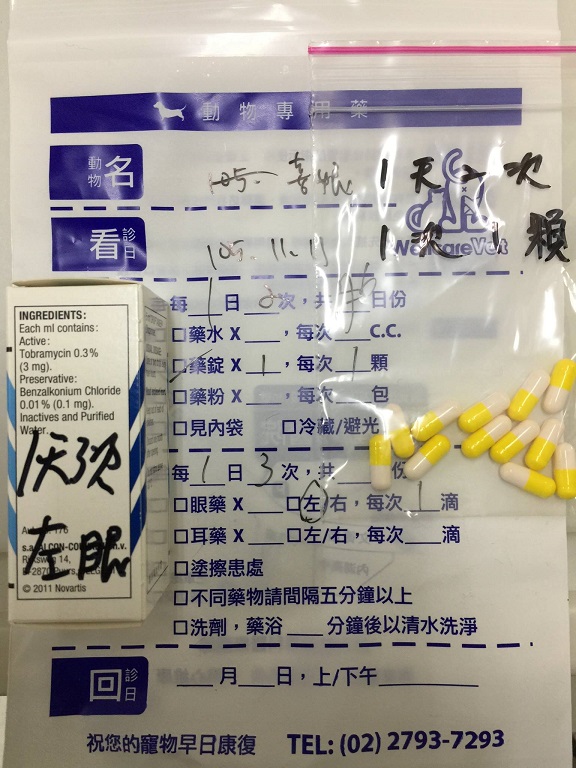 動物專用藥
動物名 喜眼
1天二次
1次1顆
WelcareVet
看診日 105.11.11
每1日2次，共 日份
□藥水 X ，每次 C.C.
□藥錠 X 1，每次1顆
□藥粉 X ，每次 包
□見內袋 □冷藏/避光
每1日3次，共 份
□眼藥 X □左/右，每次1滴
□耳藥 X □左/右，每次 滴
□塗擦患處
□不同藥物請間隔五分鐘以上
□洗劑，藥浴 分鐘後以清水洗淨
回診日 月 日，上/下午
祝您的寵物早日康復 TEL: (02) 2793-7293
INGREDIENTS:
Each ml contains:
Active:
Tobramycin 0.3%
(3 mg).
Preservative:
Benzalkonium Chloride
0.01% (0.1 mg).
Inactives and Purified
Water.
1天3次
左眼
s.a. ALCON-COUVREUR n.v.
14,
© 2011 Novartis